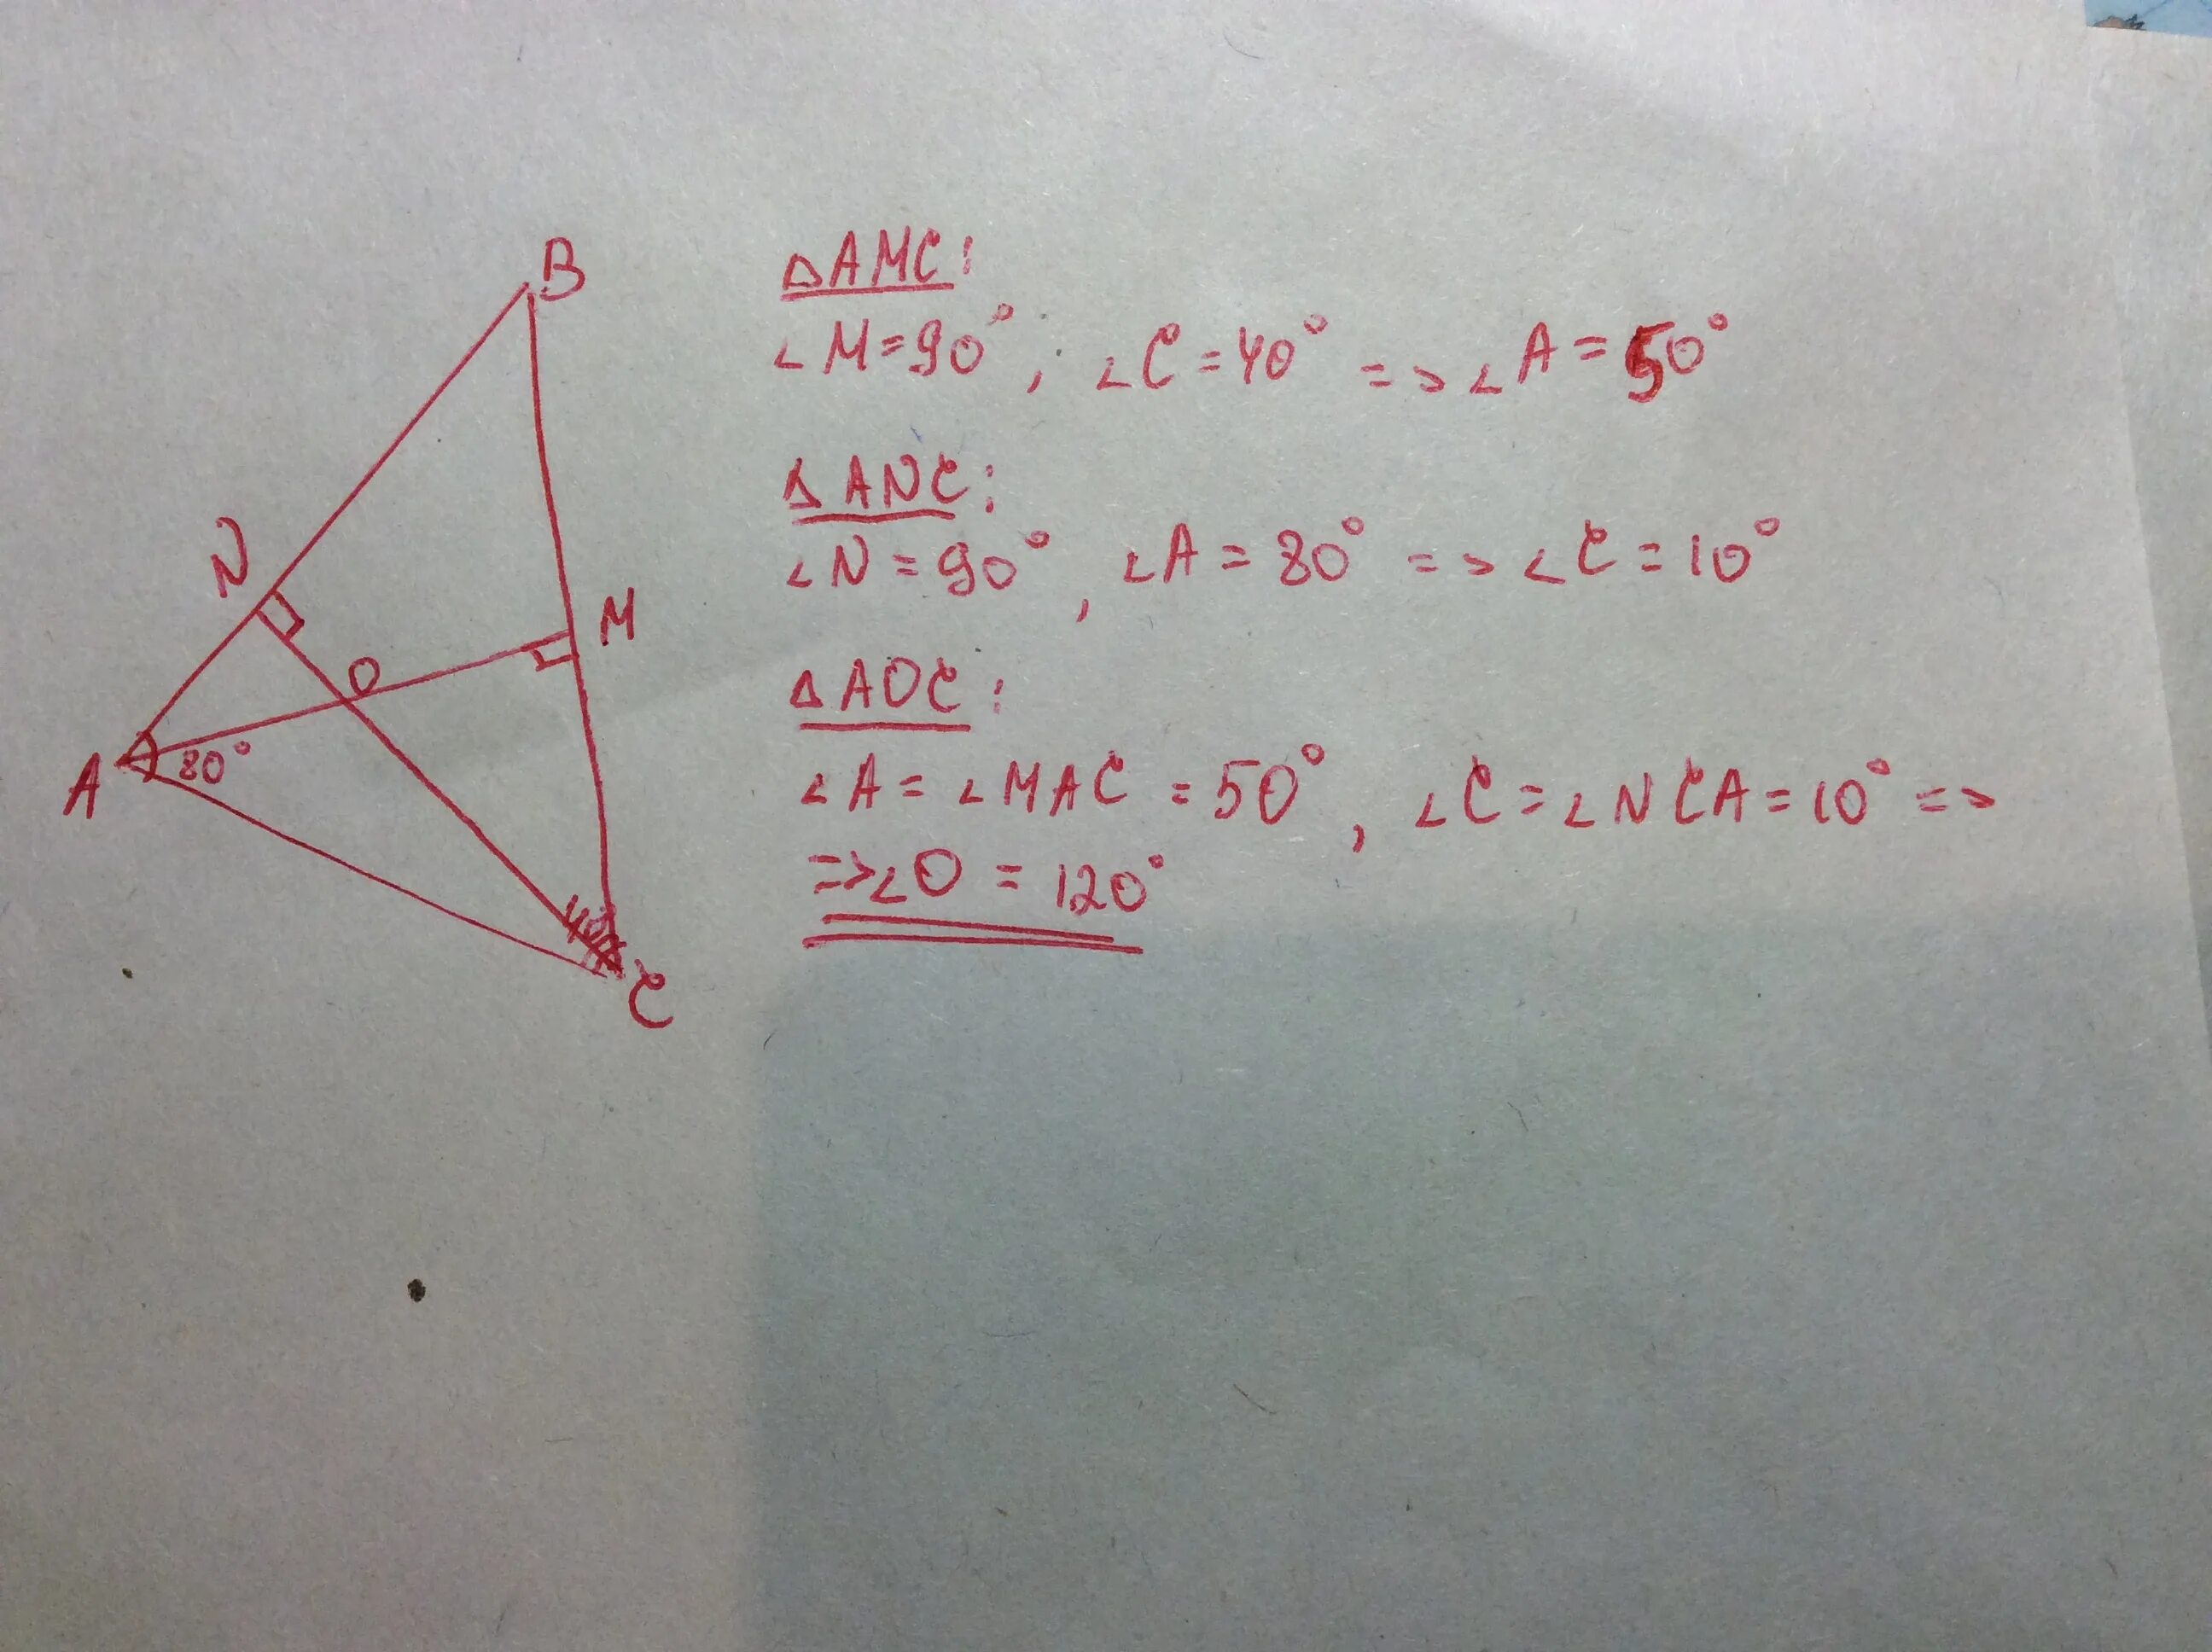 B
N
M
O
A
80°
C
△AMC:
∠M=90°, ∠C=40° => ∠A=50°
△ANC:
∠N=90°, ∠A=80° => ∠C=10°
△AOC:
∠A=∠MAC=50°, ∠C=∠NCA=10° =>
=>∠O=120°